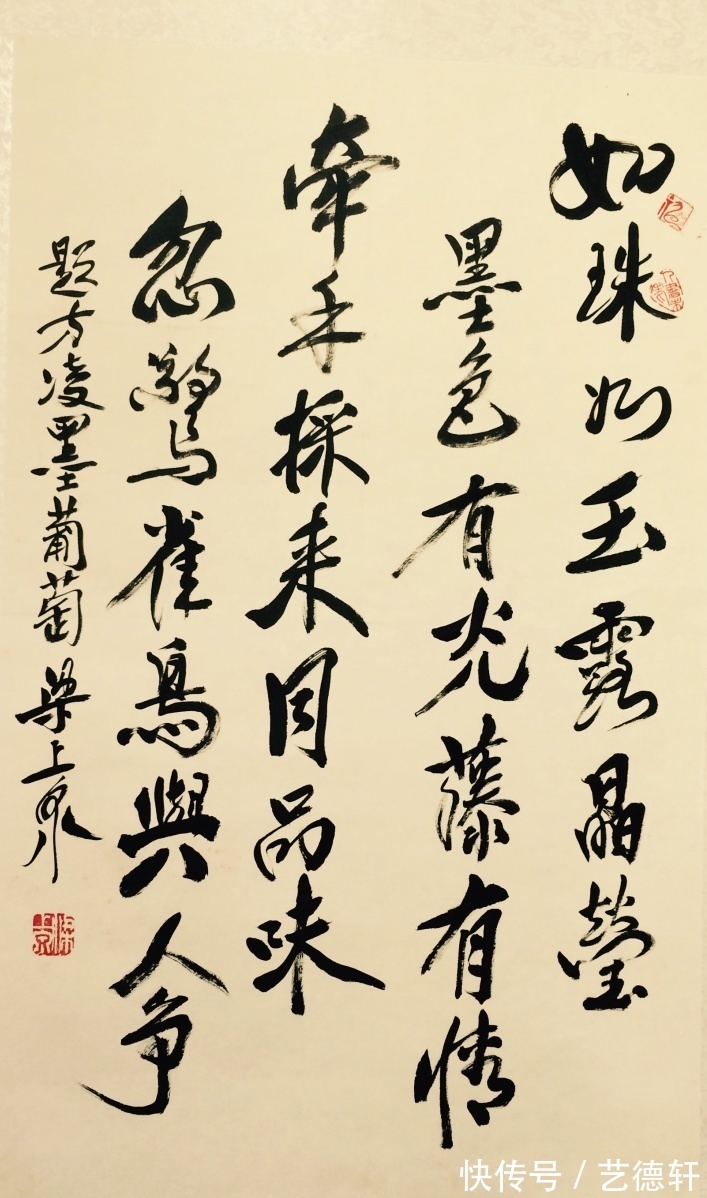 如珠如玉露晶瑩
墨色有光藤有情
牽手採来同品味
忽驚雀鳥與人争
题方凌墨葡萄 梁上泉
快传号 / 艺德轩